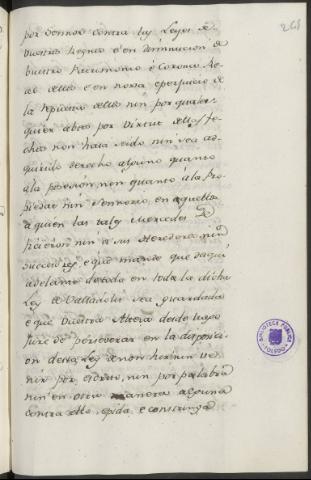 261
por Sennor contra las Leyes de
Vuestros Regnos e en diminucion de
vuestro Patrimonio e Corona Re-
al della e en noxa e perjuicio de
la Republica dellas nin por quales-
quier abtos por virtut dellas fe-
chos non haia seido nin sea ad-
quirido derecho alguno quanto
ala posesion, nin quanto á la Pro-
piedat nin Sennorio, en aquellos
a quien las tales Mercedes se
hicieron nin a sus Herederos nin
succesores, e que mande que daqui
adelante decada en toda la dicha
Ley de Valladolid sea guardada
e que Vuestra Altesa desde luego
jure de perseverar en la disposici-
on desta Ley e non her nin ve-
nir por escrito, nin por palabra
nin en otra manera alguna
contra ella, e pida, e constringa
BIBLIOTECA PUBLICA
TOLEDO